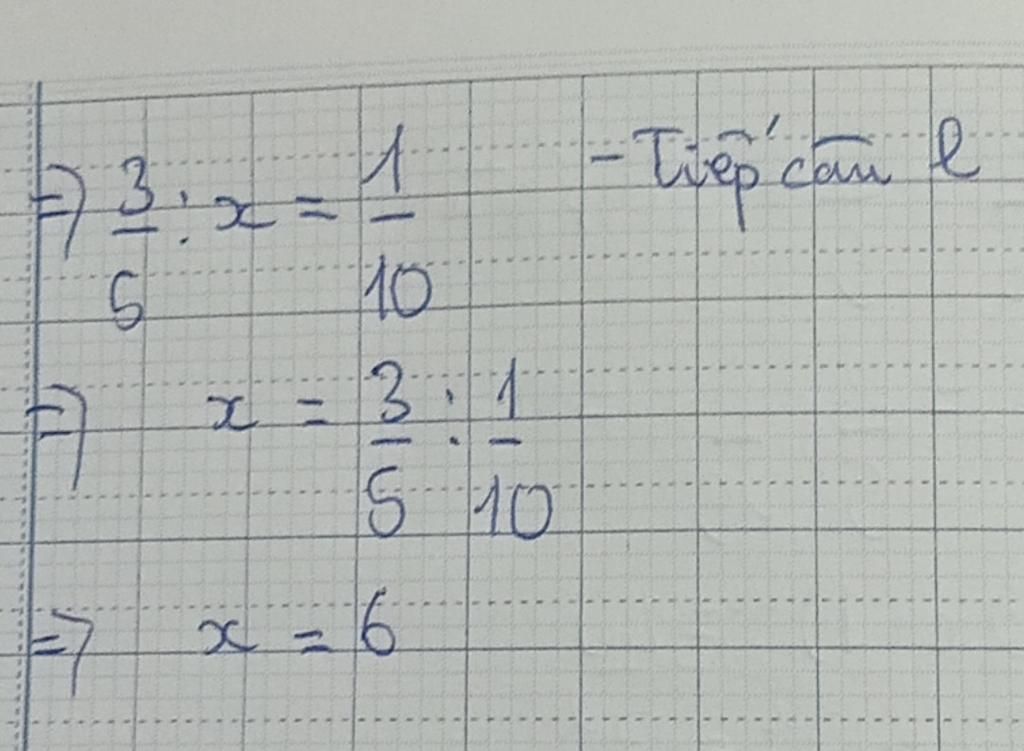 => 3/5 : x = 1/10 - Tiếp cận l
=> x = 3/5 : 1/10
=> x = 6